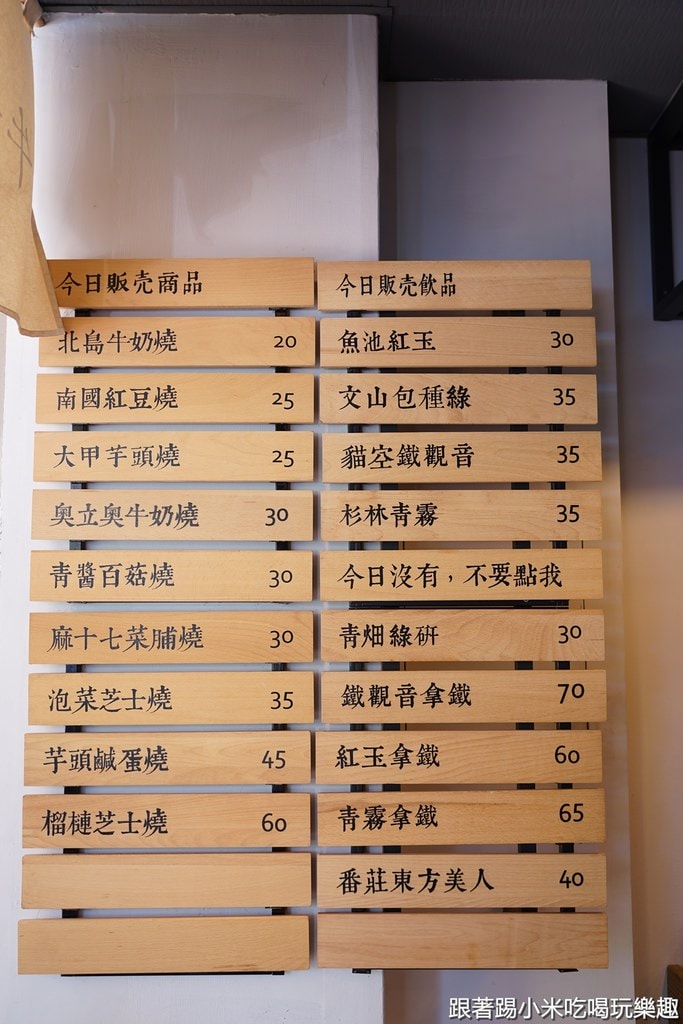 今日販売商品
北島牛奶燒 20
南國紅豆燒 25
大甲芋頭燒 25
奧立奧牛奶燒 30
青醬百菇燒 30
麻十七菜脯燒 30
泡菜芝士燒 35
芋頭鹹蛋燒 45
榴槤芝士燒 60
今日販売飲品
魚池紅玉 30
文山包種綠 35
貓空鐵觀音 35
杉林青霧 35
今日沒有，不要點我
青畑綠研 30
鐵觀音拿鐵 70
紅玉拿鐵 60
青霧拿鐵 65
番莊東方美人 40
跟著踢小米吃喝玩樂趣